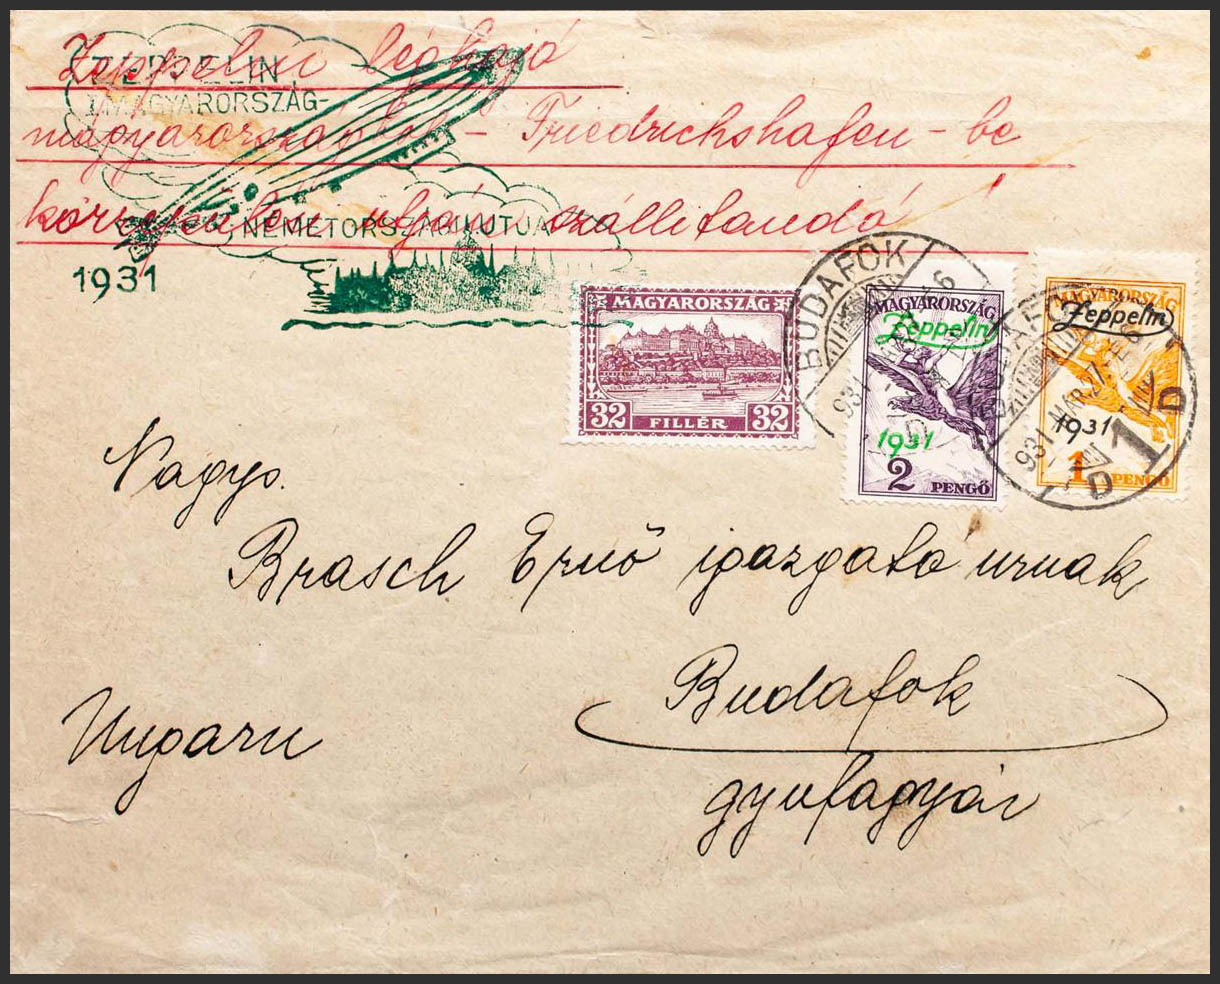 Zeppelin léghajó
magyarországból – Friedrichshafen – be
szállitandó
ZEPPELIN
I. MAGYARORSZÁG-
NÉMETORSZÁGI UTJA
1931
MAGYARORSZÁG
32 FILLÉR 32
BUDAFOK
MAGYARORSZÁG
Zeppelin
1931
2 PENGŐ
MAGYARORSZÁG
Zeppelin
1931
1 PENGŐ
931 MÁR
D
1
Nagys.
Brasch Ernő igazgató urnak
Budafok
Ungarn
gyufagyár